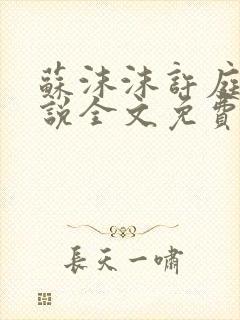 蘇沫沫許庭
說全文免費
長天一嘯